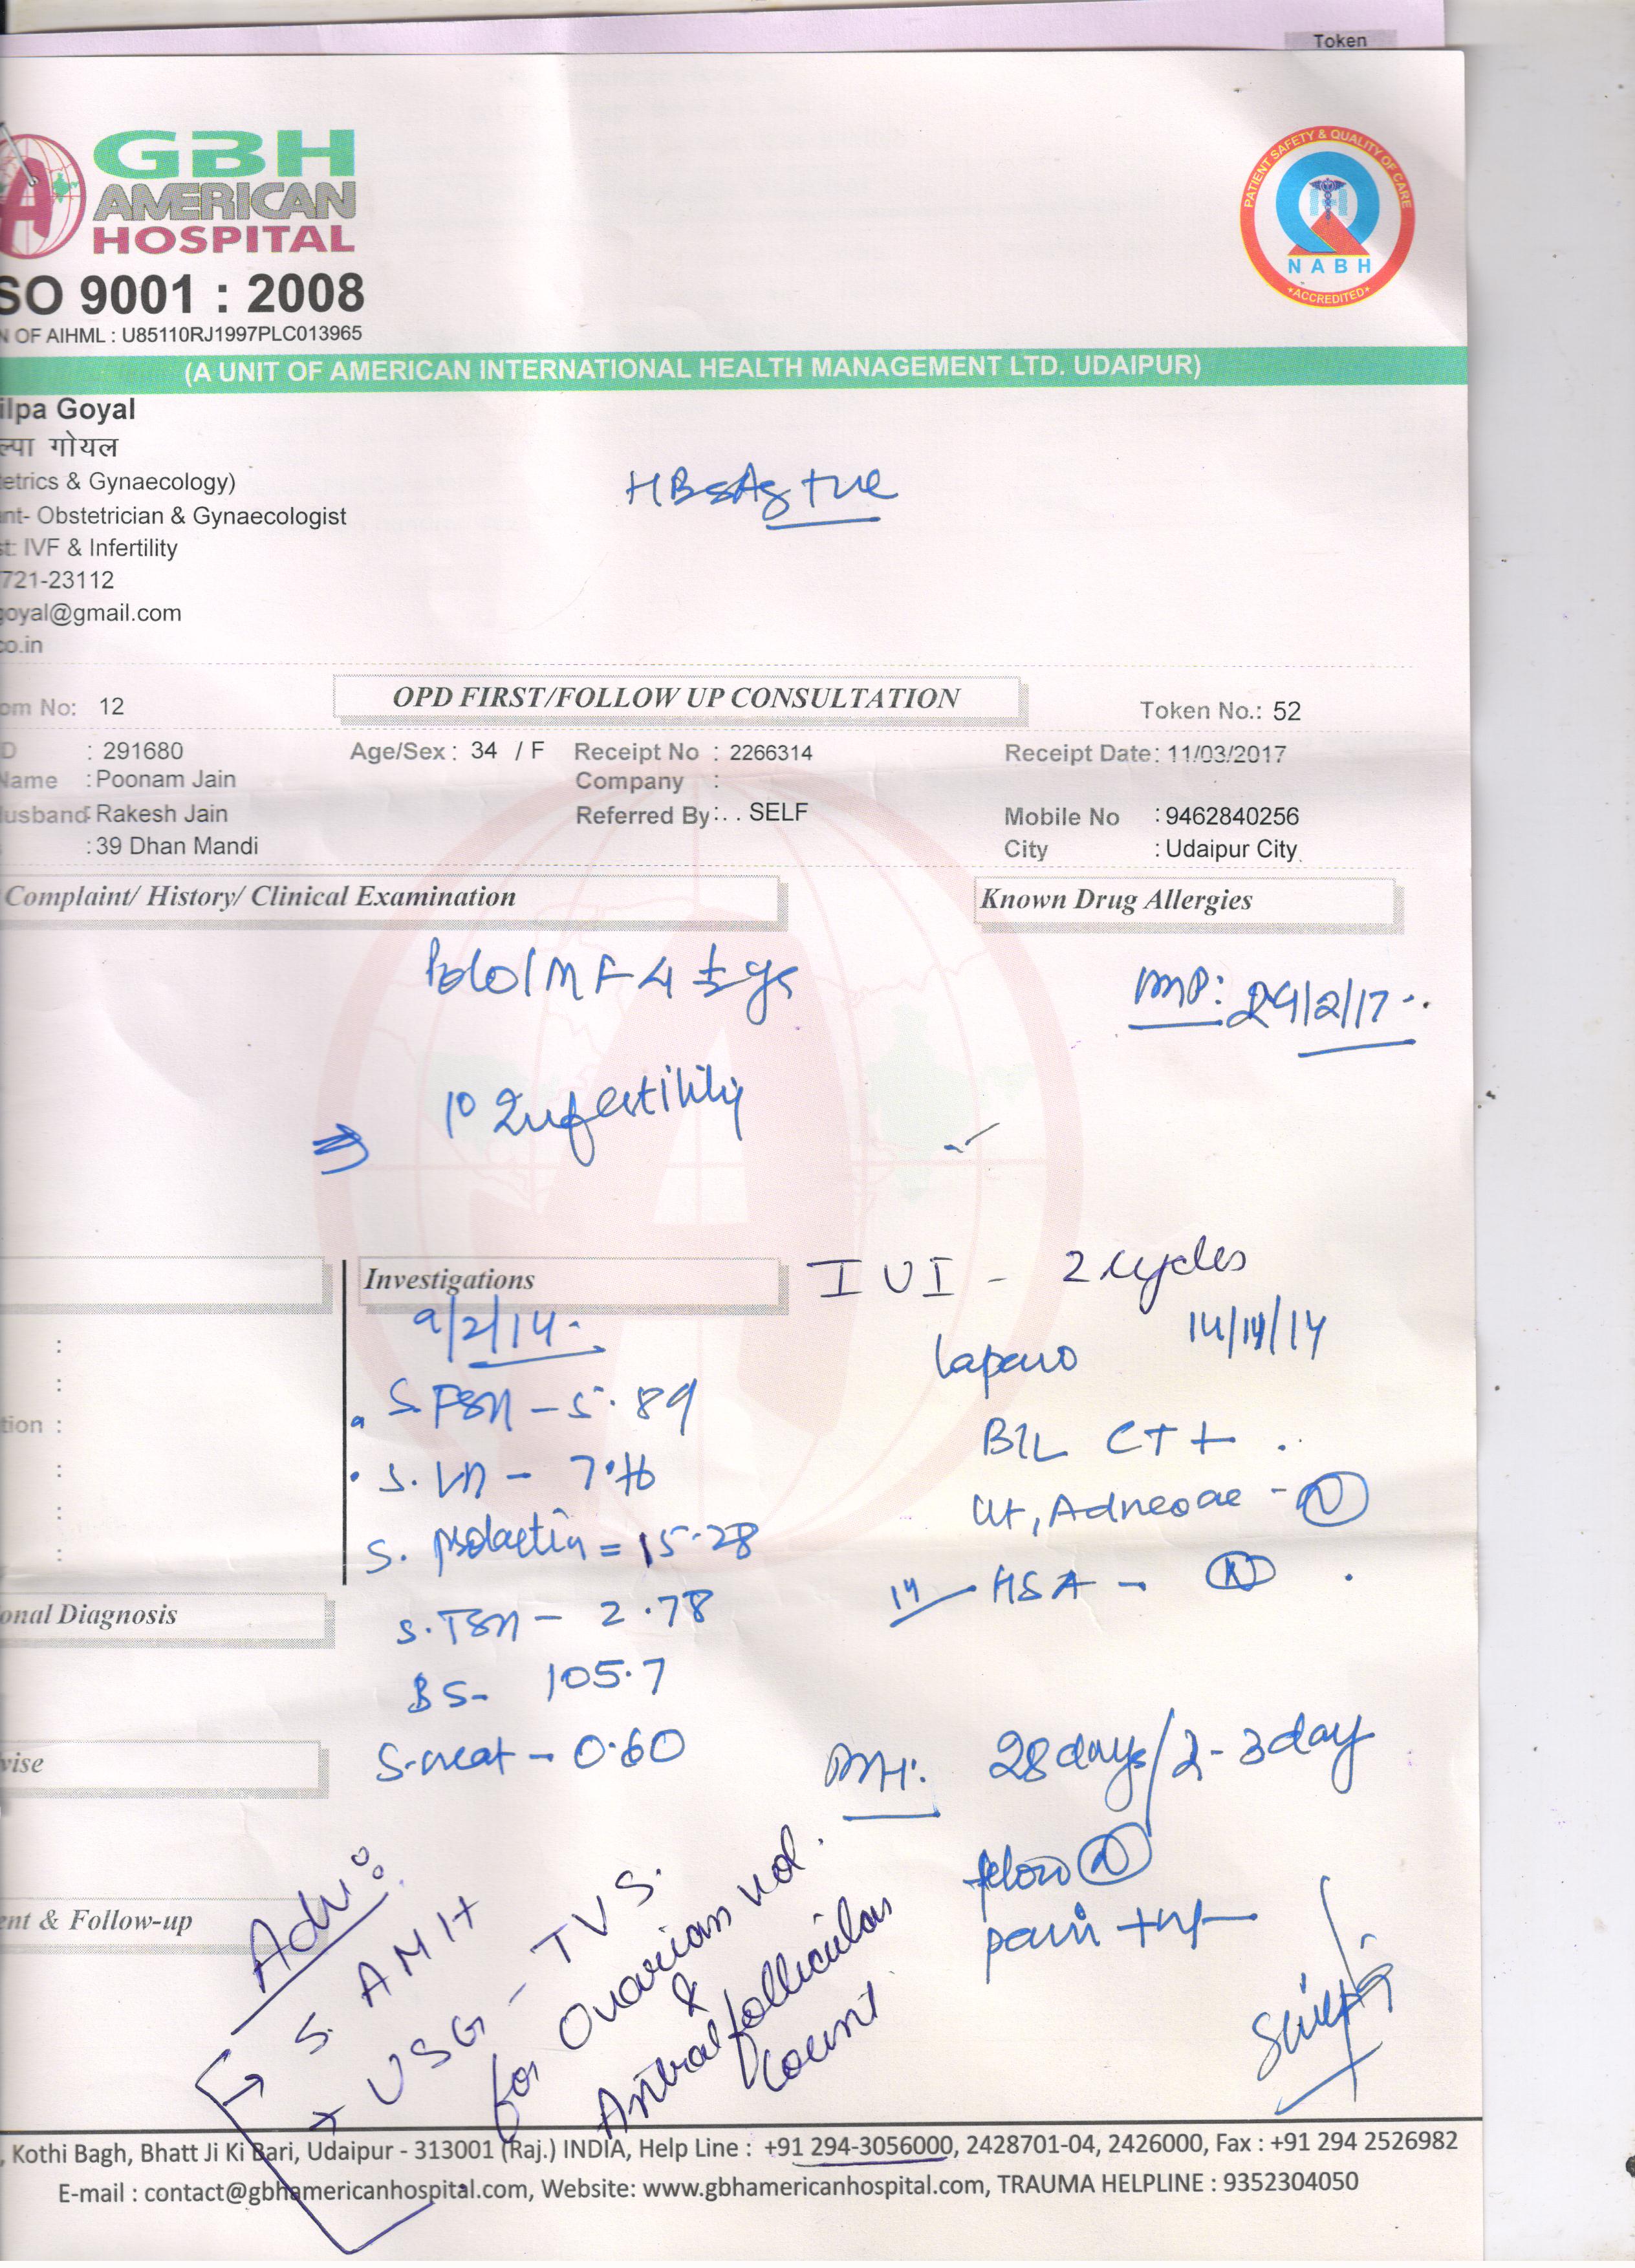 Token
GBH
AMERICAN
HOSPITAL
SO 9001 : 2008
N OF AIHML : U85110RJ1997PLC013965
PATIENT SAFETY & QUALITY OF CARE
NABH
ACCREDITED
(A UNIT OF AMERICAN INTERNATIONAL HEALTH MANAGEMENT LTD. UDAIPUR)
ilpa Goyal
ल्पा गोयल
etrics & Gynaecology)
nt- Obstetrician & Gynaecologist
st: IVF & Infertility
721-23112
goyal@gmail.com
co.in
HBsAg +ve
om No: 12
OPD FIRST/FOLLOW UP CONSULTATION
Token No.: 52
D : 291680 Age/Sex : 34 / F Receipt No : 2266314 Receipt Date: 11/03/2017
Name : Poonam Jain Company :
usband Rakesh Jain Referred By : . . SELF Mobile No : 9462840256
: 39 Dhan Mandi City : Udaipur City
Complaint/ History/ Clinical Examination Known Drug Allergies
MF 4 ½ ys
LMP: 29/2/17
1° Infertility
Investigations
IUI - 2 cycles
9/2/14
Laparo 14/14/14
S. FSH - 5.89
B/L CT +
S. LH - 7.16
Ut, Adnexae - N
S. prolactin = 15.28
14 HSA - N
onal Diagnosis
S. TSH - 2.78
BS- 105.7
vise
S. creat - 0.60
MH: 28 days/2-3 day
flow N
pain +nt
ent & Follow-up
Adv:
S. AMH
USG - TVS.
for Ovarian vol.
&
Antral follicular
count
Shilpa
, Kothi Bagh, Bhatt Ji Ki Bari, Udaipur - 313001 (Raj.) INDIA, Help Line : +91 294-3056000, 2428701-04, 2426000, Fax : +91 294 2526982
E-mail : contact@gbhamericanhospital.com, Website: www.gbhamericanhospital.com, TRAUMA HELPLINE : 9352304050